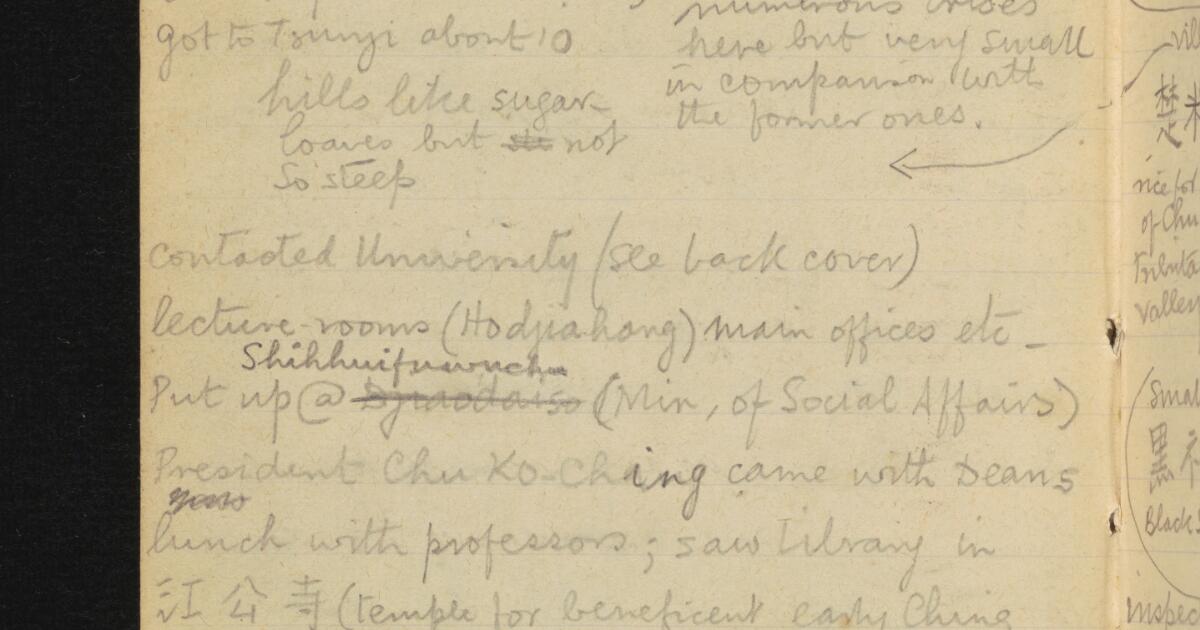 got to Tsunyi about 10
hills like sugar-
loaves but not
so steep
numerous crises
here but very small
in comparison with
the former ones.
contacted University (see back cover)
lecture-rooms (Hodjiahang) main offices etc -
Shihhuifuwuchu
Put up @ Djiaodaiso (Min, of Social Affairs)
President Chu Ko-Ching came with Deans
lunch with professors; saw Library in
江公寺 (temple for beneficent early Ching
vill
楚米
rice for
of Chu
tributa
valley
(Smal
黑神
Black
inspec